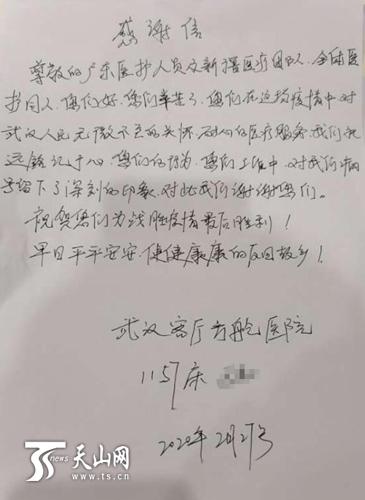 感谢信
尊敬的广东医护人员及新疆医疗团队、全体医
护同人、您们好、您们辛苦了、您们在这场疫情中对
武汉人民无微不至的关怀、耐心的医疗服务、我们永
远铭记于心、您们的行为、您们工作中、对我们病
号留下了深刻的印象、对此我们谢谢您们。
祝贺您们为战胜疫情最后胜利！
早日平平安安、健健康康的返回故乡！
武汉客厅方舱医院
1157床
2020年2月27号
TS news 天山网
www.ts.cn